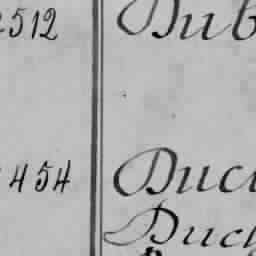 2512 Dub
454 Duc
Duc